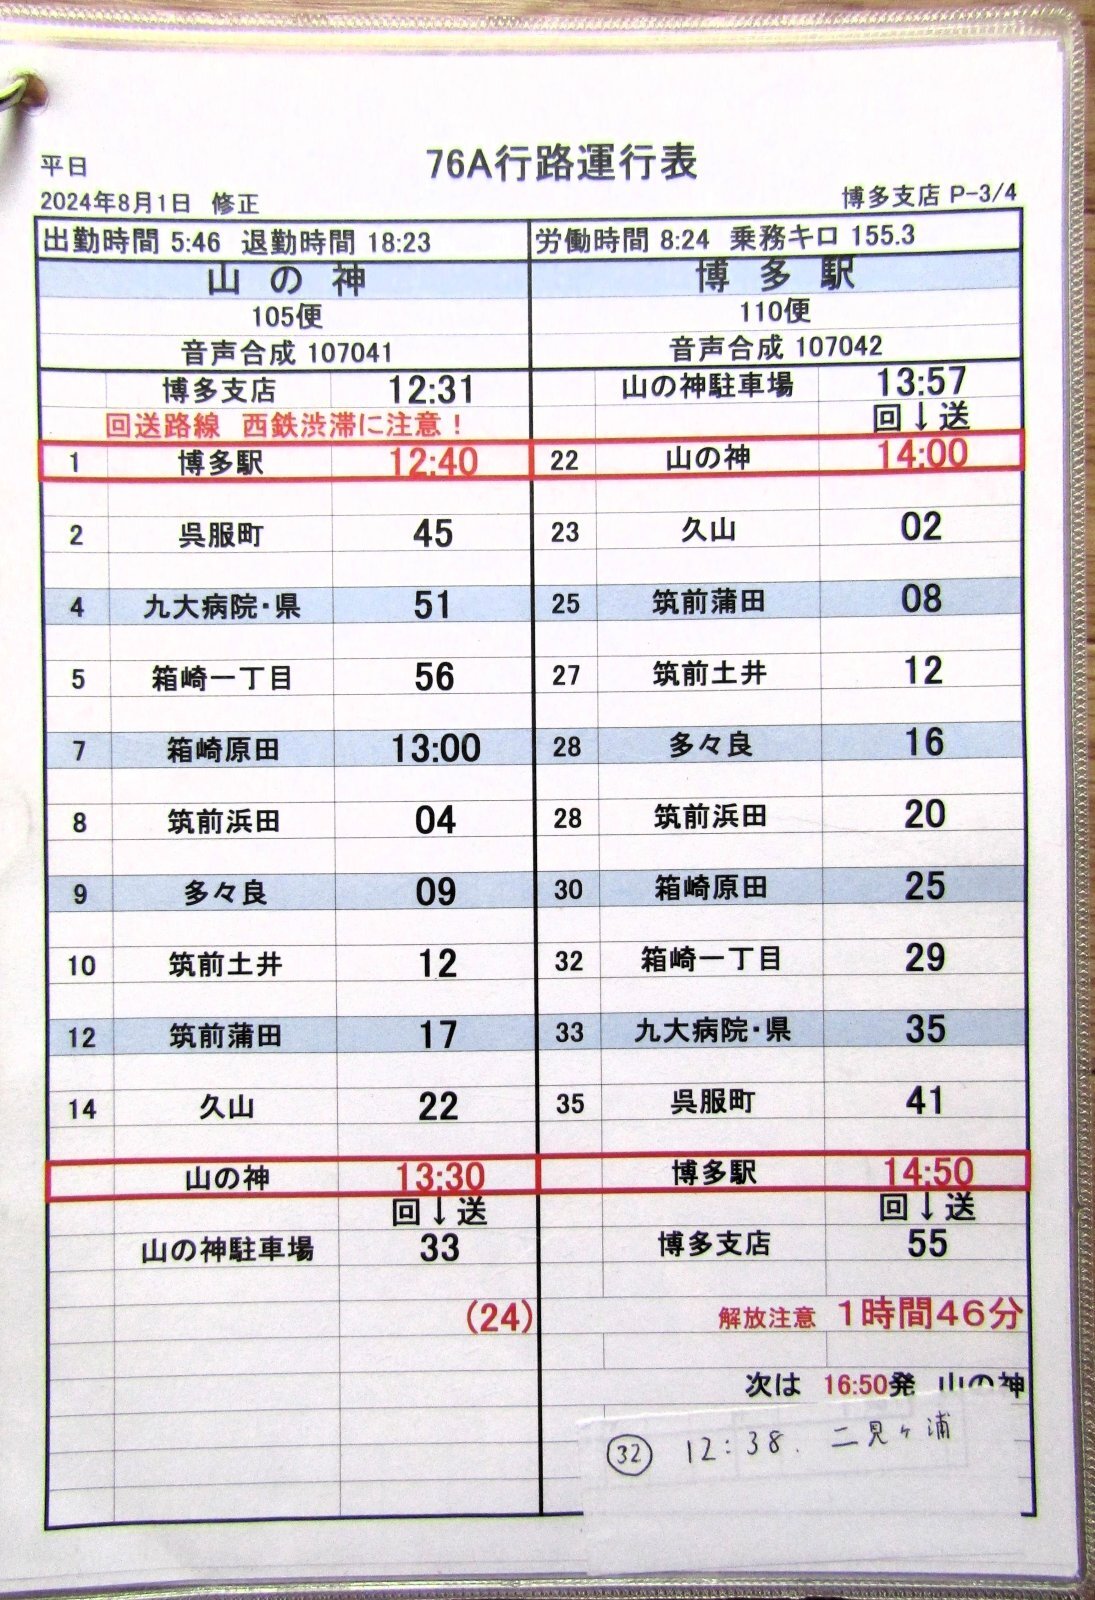 76A行路運行表
平日
2024年8月1日 修正
博多支店 P-3/4
出勤時間 5:46 退勤時間 18:23
労働時間 8:24 乗務キロ 155.3
山の神
105便
音声合成 107041
博多支店 12:31
回送路線 西鉄渋滞に注意！
1 博多駅 12:40
2 呉服町 45
4 九大病院・県 51
5 箱崎一丁目 56
7 箱崎原田 13:00
8 筑前浜田 04
9 多々良 09
10 筑前土井 12
12 筑前蒲田 17
14 久山 22
山の神 13:30
回↓送
山の神駐車場 33
(24)
博多駅
110便
音声合成 107042
山の神駐車場 13:57
回↓送
22 山の神 14:00
23 久山 02
25 筑前蒲田 08
27 筑前土井 12
28 多々良 16
28 筑前浜田 20
30 箱崎原田 25
32 箱崎一丁目 29
33 九大病院・県 35
35 呉服町 41
博多駅 14:50
回↓送
博多支店 55
解放注意 1時間46分
次は 16:50発 山の神
32 12:38. 二見ヶ浦